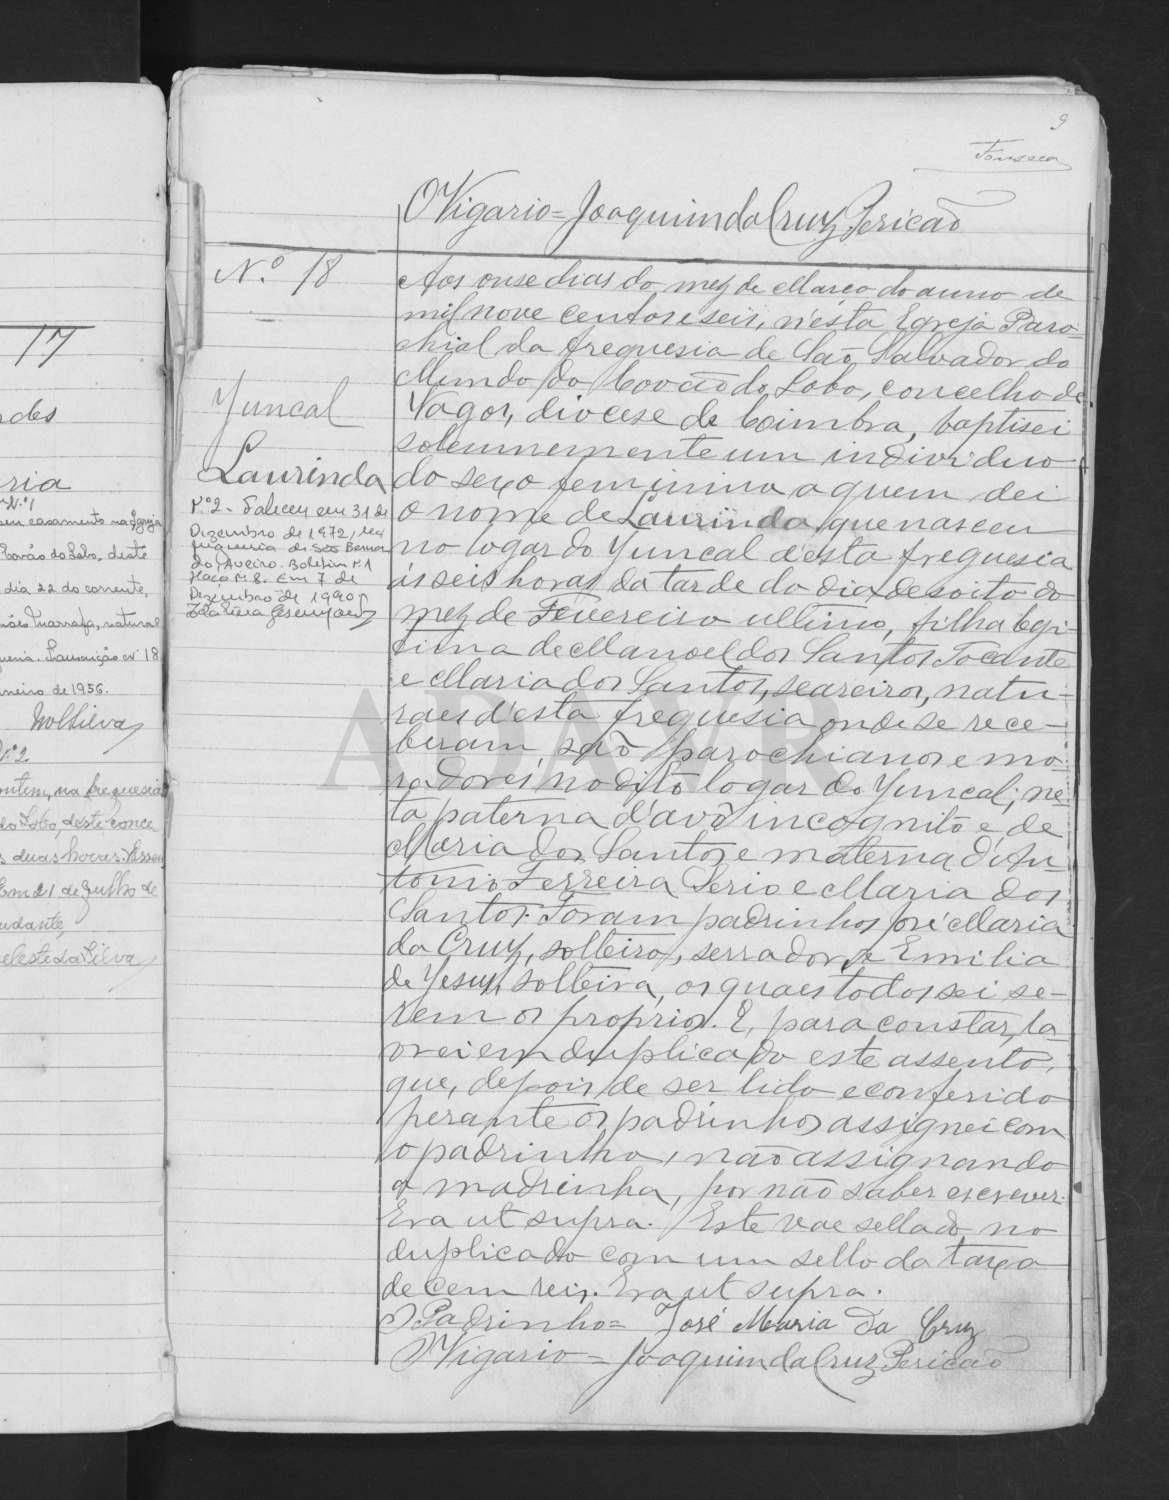 17
ria
em casamento na Igreja
Covão do Lobo, deste
dia 22 do corrente,
natural
18
neiro de 1956.
Nº 2
ontem, na freguesia
do Lobo, deste conce
s duas horas.
Em 21 de Julho de
udante,
eleste da Silva
9
Fonseca
O Vigario = Joaquim da Cruz Pericão
N.º 18
Yuncal
Laurinda
Nº 2 - Faleceu em 31 de
Dezembro de 1972, na
freguesia de São Bernar
do, Aveiro. Boletim nº 1
Maço nº 8. Em 7 de
Dezembro de 1990
Aos onse dias do mez de Março do anno de
mil nove centos e seis, n'esta Egreja Paro-
chial da freguesia de São Salvador do
Mundo do Covão do Lobo, concelho de
Vagos, diocese de Coimbra, baptisei
solemnemente um individuo
do sexo feminino a quem dei
o nome de Laurinda, que nasceu
no logar do Yuncal d'esta freguesia
ás seis horas da tarde do dia desoito do
mez de Fevereiro ultimo, filha legi-
tima de Manoel dos Santos Tocante
e Maria dos Santos, seareiros, natu-
raes d'esta freguesia onde se rece-
beram, são parochianos e mo-
radores no dito logar do Yuncal; ne-
ta paterna d'avô incognito e de
Maria dos Santos e materna d'An-
tonio Ferreira Serio e Maria dos
Santos. Foram padrinhos José Maria
da Cruz, solteiro, serrador, e Emilia
de Yesus, solteira, os quaes todos sei se-
rem os proprios. E, para constar, la-
vrei em duplicado este assento,
que, depois de ser lido e conferido
perante os padrinhos assignei com
o padrinho, não assignando
a madrinha, por não saber escrever.
Era ut supra. Este vae sellado no
duplicado com um sello da taxa
de cem reis. Era ut supra.
O Padrinho = José Maria da Cruz
O Vigario = Joaquim da Cruz Pericão
ADAVR